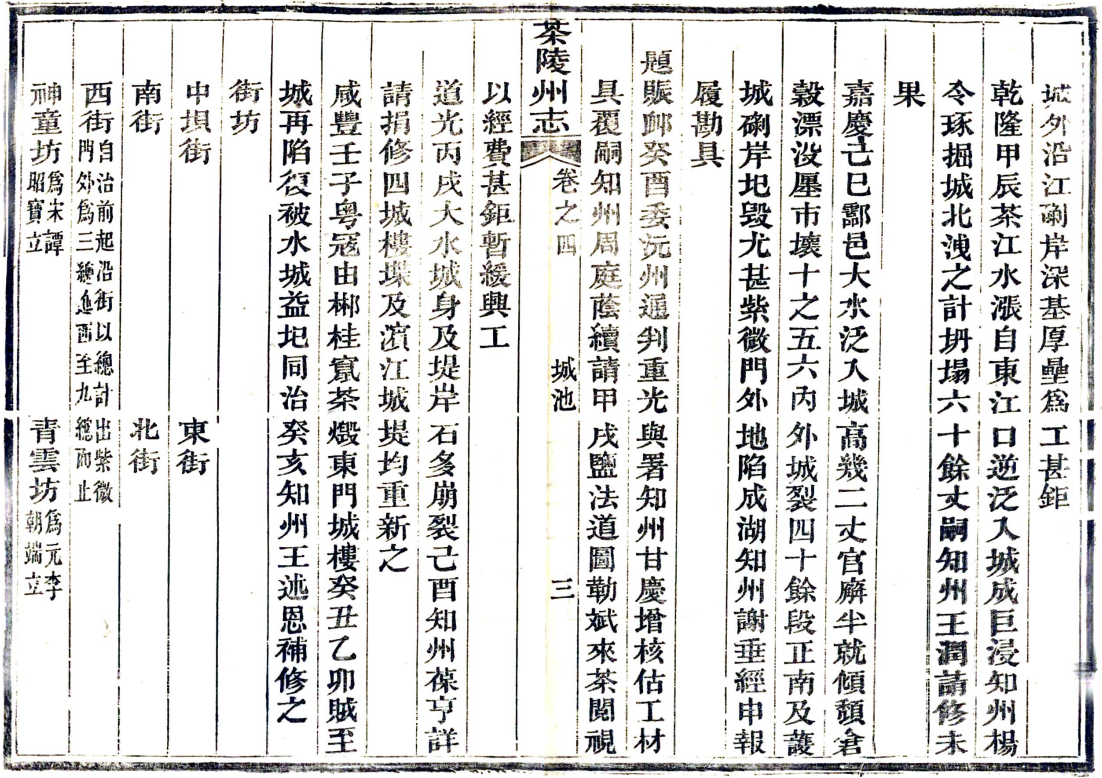 城外沿江硎岸深基厚壘爲工甚鉅
乾隆甲辰茶江水漲自東江口逆泛入城成巨浸知州楊
令琢掘城北洩之計坍塌六十餘丈嗣知州王潤請修未
果
嘉慶己巳酃邑大水泛入城高幾二丈官廨半就傾頹倉
穀漂没廛市壞十之五六內外城裂四十餘段正南及護
城硎岸圮毀尤甚紫微門外地陷成湖知州謝垂經申報
履勘具
題賑卹癸酉委沅州通判重光與署知州甘慶增核估工材
具覆嗣知州周庭蔭續請甲戌鹽法道圖勒斌來茶閱視
茶陵州志 卷之四 城池 三
以經費甚鉅暫緩興工
道光丙戌大水城身及堤岸石多崩裂己酉知州葆亨詳
請捐修四城樓垛及濵江城堤均重新之
咸豐壬子粤冦由郴桂竄茶燬東門城樓癸丑乙卯賊至
城再陷復被水城益圮同治癸亥知州王述恩補修之
街坊
中垻街 東街
南街 北街
西街自治前起沿街以總計出紫微門外爲三總進西至九總而止
神童坊爲宋譚昭寶立 青雲坊爲元李朝端立